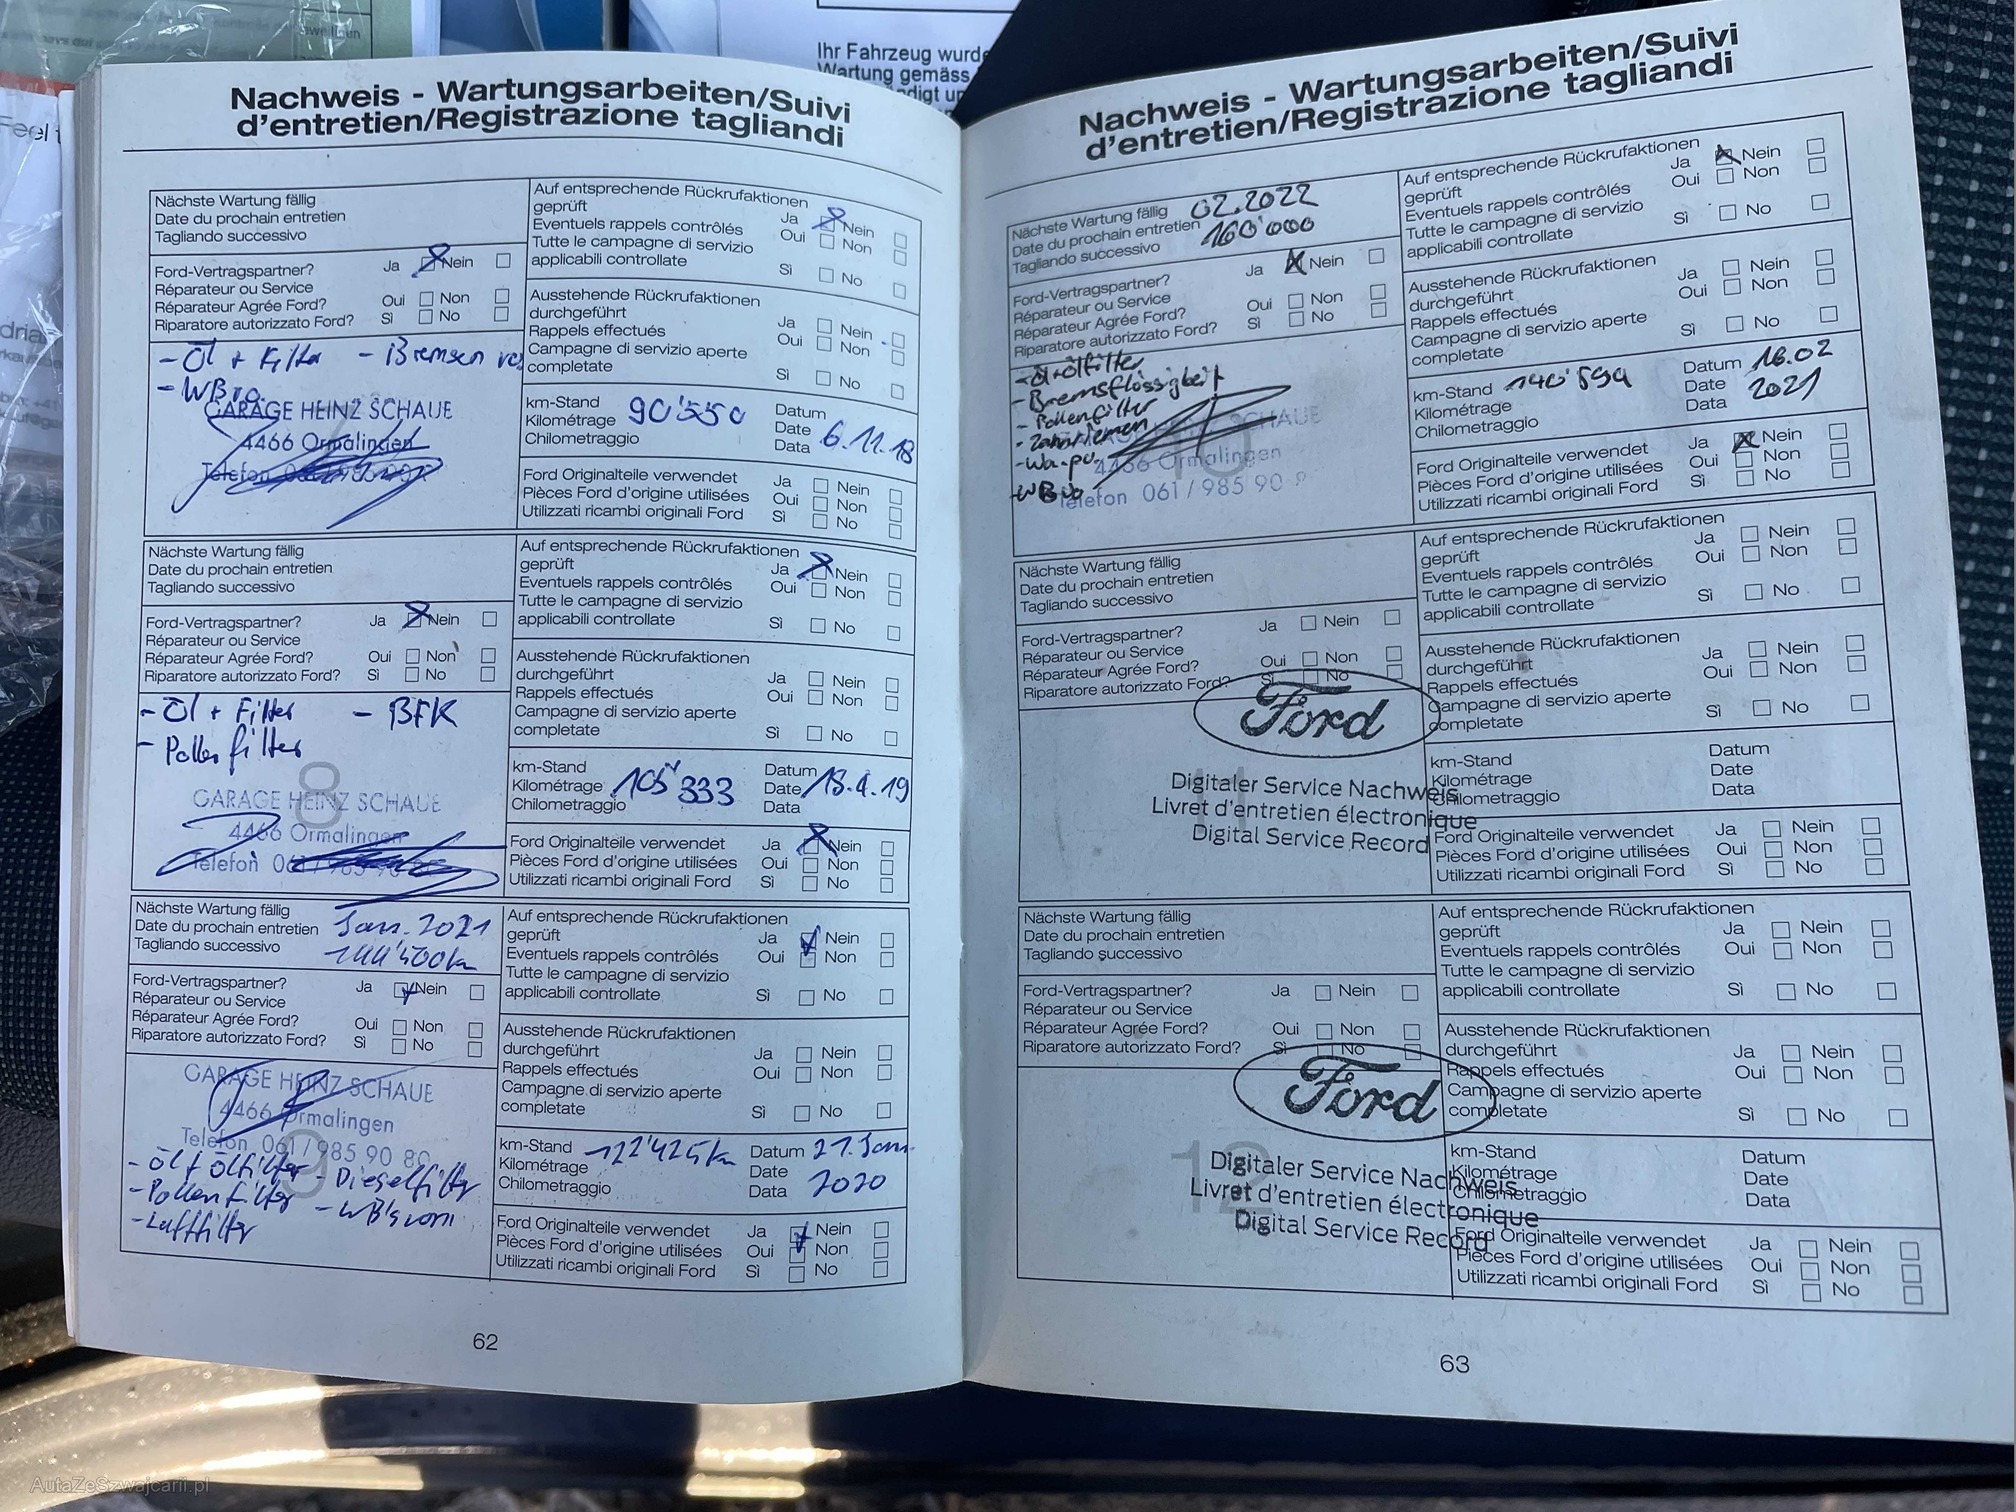 Ihr Fahrzeug wurde
Wartung gemäss
Nachweis - Wartungsarbeiten/Suivi
d'entretien/Registrazione tagliandi
Nächste Wartung fällig
Date du prochain entretien
Tagliando successivo
Auf entsprechende Rückrufaktionen
geprüft Ja Nein
Eventuels rappels contrôlés Oui Non
Tutte le campagne di servizio
applicabili controllate Sì No
Ford-Vertragspartner? Ja Nein
Réparateur ou Service
Réparateur Agrée Ford? Oui Non
Riparatore autorizzato Ford? Sì No
Ausstehende Rückrufaktionen
durchgeführt Ja Nein
Rappels effectués Oui Non
Campagne di servizio aperte
completate Sì No
- Öl + Filter - Bremsen
GARAGE HEINZ SCHAUE
4466 Ormalingen
Telefon
km-Stand
Kilométrage 90'550
Chilometraggio
Datum
Date 6.11.18
Data
Ford Originalteile verwendet Ja Nein
Pièces Ford d'origine utilisées Oui Non
Utilizzati ricambi originali Ford Sì No
Nächste Wartung fällig
Date du prochain entretien
Tagliando successivo
Auf entsprechende Rückrufaktionen
geprüft Ja Nein
Eventuels rappels contrôlés Oui Non
Tutte le campagne di servizio
applicabili controllate Sì No
Ford-Vertragspartner? Ja Nein
Réparateur ou Service
Réparateur Agrée Ford? Oui Non
Riparatore autorizzato Ford? Sì No
Ausstehende Rückrufaktionen
durchgeführt Ja Nein
Rappels effectués Oui Non
Campagne di servizio aperte
completate Sì No
- Öl + Filter - BFK
- Pollenfilter
8
GARAGE HEINZ SCHAUE
4466 Ormalingen
Telefon
km-Stand
Kilométrage 105'333
Chilometraggio
Datum
Date 18.4.19
Data
Ford Originalteile verwendet Ja Nein
Pièces Ford d'origine utilisées Oui Non
Utilizzati ricambi originali Ford Sì No
Nächste Wartung fällig
Date du prochain entretien Jan. 2021
Tagliando successivo
Auf entsprechende Rückrufaktionen
geprüft Ja Nein
Eventuels rappels contrôlés Oui Non
Tutte le campagne di servizio
applicabili controllate Sì No
Ford-Vertragspartner? Ja Nein
Réparateur ou Service
Réparateur Agrée Ford? Oui Non
Riparatore autorizzato Ford? Sì No
Ausstehende Rückrufaktionen
durchgeführt Ja Nein
Rappels effectués Oui Non
Campagne di servizio aperte
completate Sì No
9
GARAGE HEINZ SCHAUE
4466 Ormalingen
Telefon 061/985 90 80
- Öl + Ölfilter - Dieselfilter
- Pollenfilter
- Luftfilter
km-Stand 122'425km
Kilométrage
Chilometraggio
Datum 21. Jan.
Date
Data 2020
Ford Originalteile verwendet Ja Nein
Pièces Ford d'origine utilisées Oui Non
Utilizzati ricambi originali Ford Sì No
62
Nachweis - Wartungsarbeiten/Suivi
d'entretien/Registrazione tagliandi
Nächste Wartung fällig 02.2022
Date du prochain entretien 160'000
Tagliando successivo
Auf entsprechende Rückrufaktionen
geprüft Ja Nein
Eventuels rappels contrôlés Oui Non
Tutte le campagne di servizio
applicabili controllate Sì No
Ford-Vertragspartner? Ja Nein
Réparateur ou Service
Réparateur Agrée Ford? Oui Non
Riparatore autorizzato Ford? Sì No
Ausstehende Rückrufaktionen
durchgeführt Ja Nein
Rappels effectués Oui Non
Campagne di servizio aperte
completate Sì No
- Öl+Ölfilter
- Bremsflüssigkeit
- Pollenfilter
- Zahnriemen
- Wa.pu.
SCHAUE
4466 Ormalingen
Telefon 061/985 90
km-Stand 140'594
Kilométrage
Chilometraggio
Datum 16.02
Date 2021
Data
Ford Originalteile verwendet Ja Nein
Pièces Ford d'origine utilisées Oui Non
Utilizzati ricambi originali Ford Sì No
Nächste Wartung fällig
Date du prochain entretien
Tagliando successivo
Auf entsprechende Rückrufaktionen
geprüft Ja Nein
Eventuels rappels contrôlés Oui Non
Tutte le campagne di servizio
applicabili controllate Sì No
Ford-Vertragspartner? Ja Nein
Réparateur ou Service
Réparateur Agrée Ford? Oui Non
Riparatore autorizzato Ford? Sì No
Ausstehende Rückrufaktionen
durchgeführt Ja Nein
Rappels effectués Oui Non
Campagne di servizio aperte
completate Sì No
Ford
11
Digitaler Service Nachweis
Livret d'entretien électronique
Digital Service Record
km-Stand
Kilométrage
Chilometraggio
Datum
Date
Data
Ford Originalteile verwendet Ja Nein
Pièces Ford d'origine utilisées Oui Non
Utilizzati ricambi originali Ford Sì No
Nächste Wartung fällig
Date du prochain entretien
Tagliando successivo
Auf entsprechende Rückrufaktionen
geprüft Ja Nein
Eventuels rappels contrôlés Oui Non
Tutte le campagne di servizio
applicabili controllate Sì No
Ford-Vertragspartner? Ja Nein
Réparateur ou Service
Réparateur Agrée Ford? Oui Non
Riparatore autorizzato Ford? Sì No
Ausstehende Rückrufaktionen
durchgeführt Ja Nein
Rappels effectués Oui Non
Campagne di servizio aperte
completate Sì No
Ford
12
Digitaler Service Nachweis
Livret d'entretien électronique
Digital Service Record
km-Stand
Kilométrage
Chilometraggio
Datum
Date
Data
Ford Originalteile verwendet Ja Nein
Pièces Ford d'origine utilisées Oui Non
Utilizzati ricambi originali Ford Sì No
63
AutaZeSzwajcarii.pl